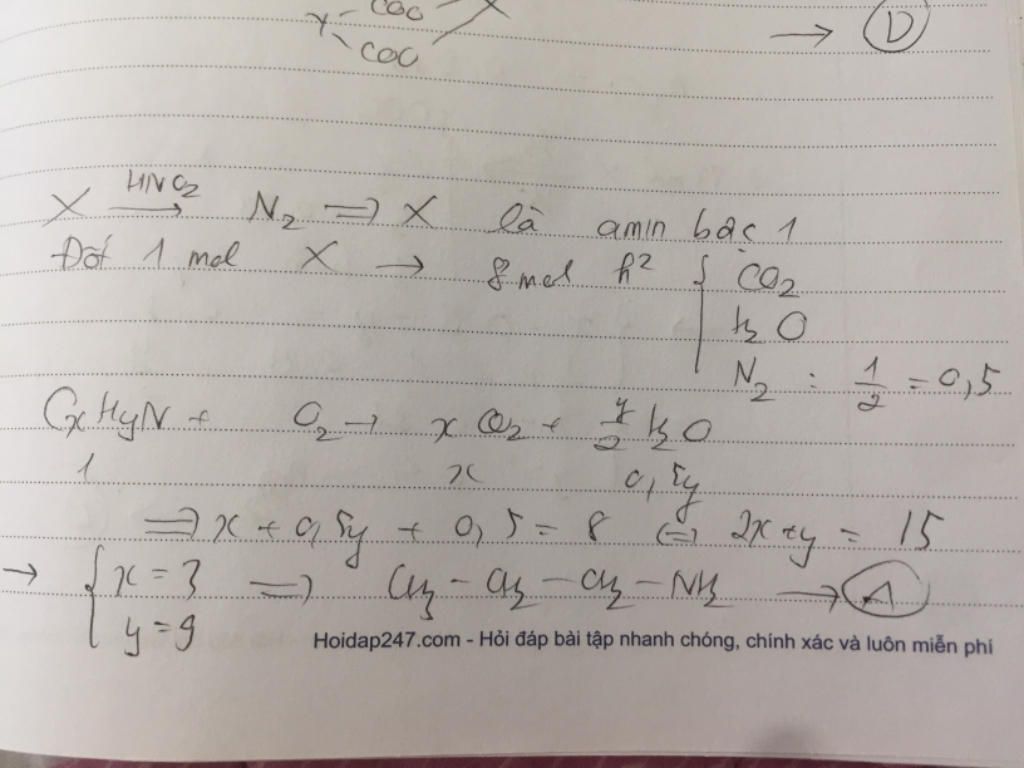 COO
Y COO X → D
X HNO2 → N2 => X là amin bậc 1
Đốt 1 mol X → 8 mol h² { CO2
H2O
N2 : 1/2 = 0,5
CxHyN + O2 → x CO2 + y/2 H2O
1 x 0,5y
=> x + 0,5y + 0,5 = 8 (=) 2x+y = 15
→ { x = 3 => CH3 - CH2 - CH2 - NH2 → A
y = 9
Hoidap247.com - Hỏi đáp bài tập nhanh chóng, chính xác và luôn miễn phí